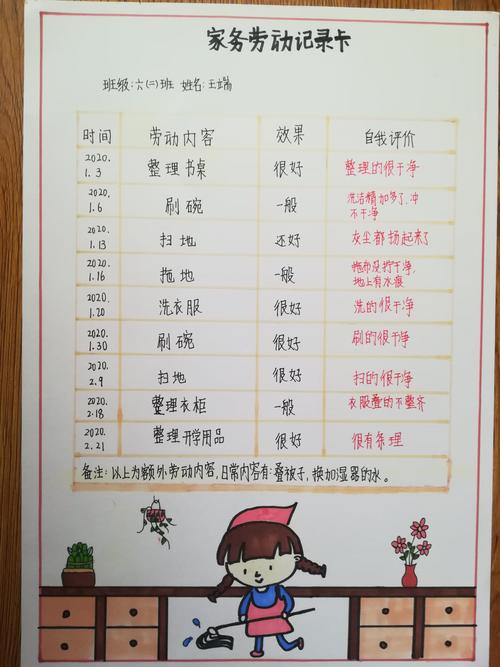 家务劳动记录卡
班级:六(二)班 姓名:王端
时间 劳动内容 效果 自我评价
2020.
1.3 整理书桌 很好 整理的很干净
2020.
1.6 刷碗 一般 洗洁精加多了,冲
不干净
2020.
1.13 扫地 还好 灰尘都扬起来了
2020.
1.16 拖地 一般 拖布没拧干净,
地上有水痕
2020.
1.20 洗衣服 很好 洗的很干净
2020.
1.30 刷碗 很好 刷的很干净
2020.
2.9 扫地 很好 扫的很干净
2020.
2.18 整理衣柜 一般 衣服叠的不整齐
2020.
2.21 整理开学用品 很好 很有条理
备注:以上为额外劳动内容,日常内容有:叠被子,换加湿器的水。